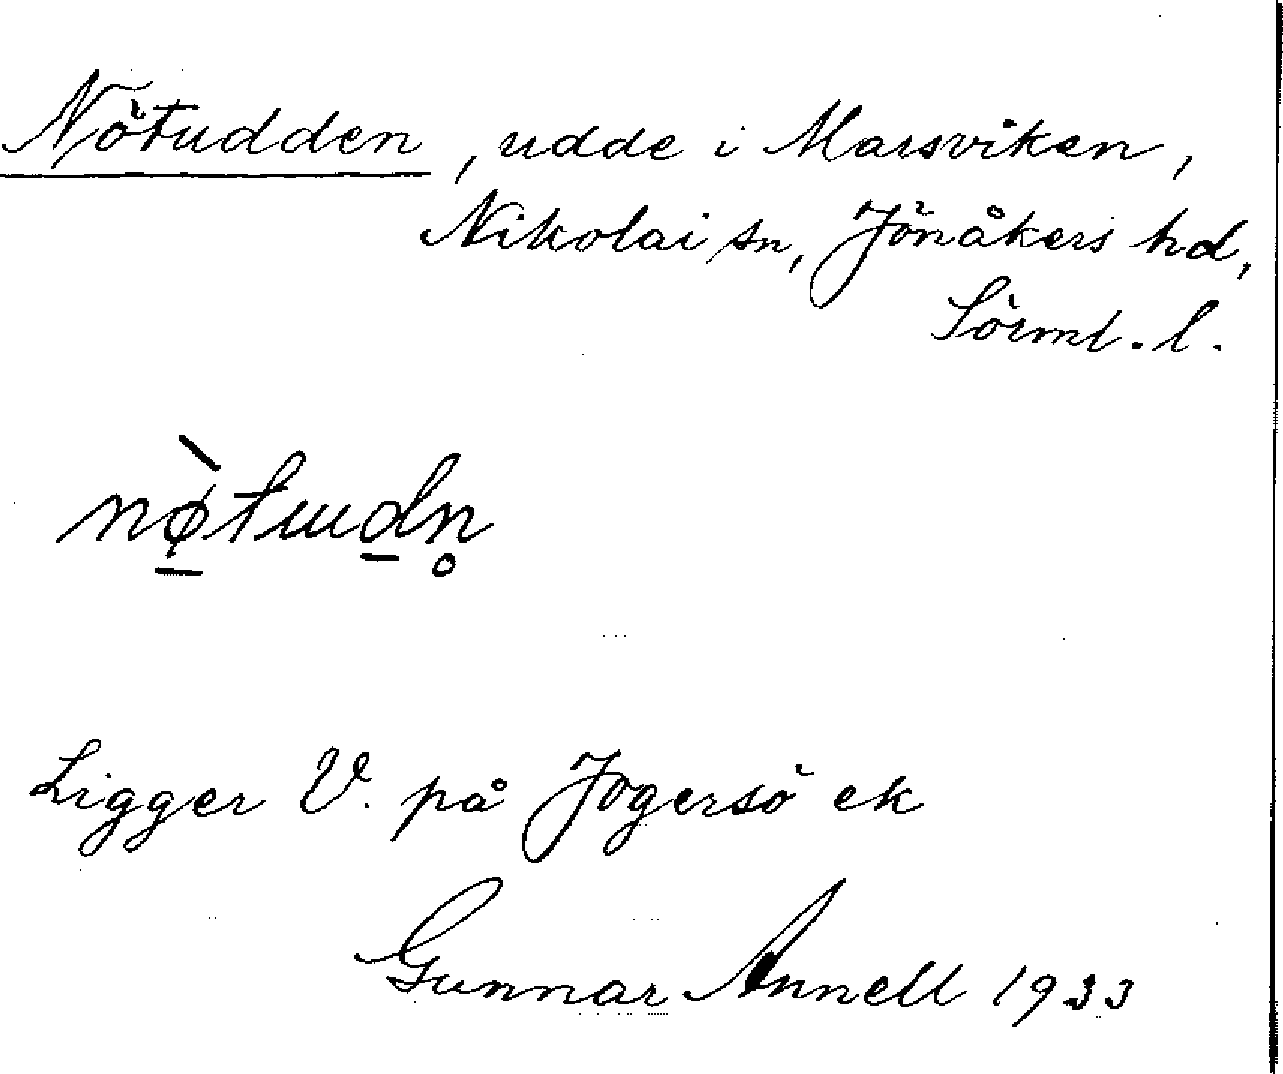 Nötudden, udde i Marsviken,
Nikolai sn, Jönåkers hd,
Sörml. l.
nø̱̀tuud̲n̥
Ligger V. på Jogersö ek
Gunnar Annell 1933